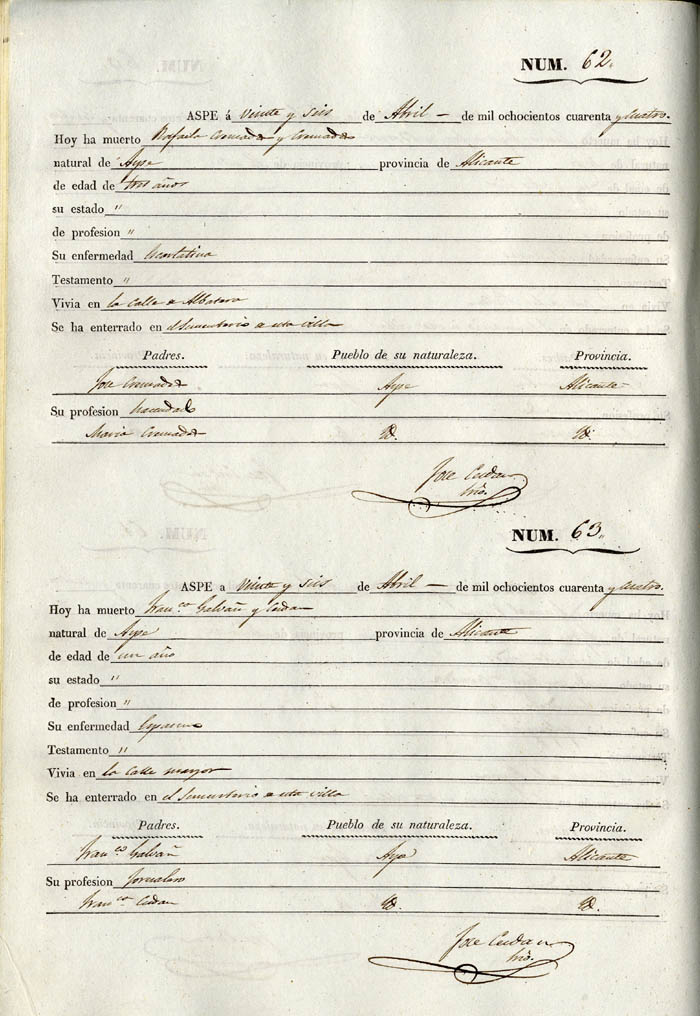 NUM. 62.
ASPE á Veinte y Seis de Abril — de mil ochocientos cuarenta y Cuatro.
Hoy ha muerto Rafaela Cremades y Cremades
natural de Aspe provincia de Alicante
de edad de tres años
su estado "
de profesion "
Su enfermedad Escarlatina
Testamento "
Vivia en la Calle de Albatera
Se ha enterrado en el Sementerio de esta villa
Padres. Pueblo de su naturaleza. Provincia.
Jose Cremades Aspe Alicante
Su profesion hacendado
Maria Cremades Id. Id.
Jose
NUM. 63.
ASPE a Veinte y Seis de Abril — de mil ochocientos cuarenta y Cuatro.
Hoy ha muerto Fran.co Galvañ y
natural de Aspe provincia de Alicante
de edad de un año
su estado "
de profesion "
Su enfermedad
Testamento "
Vivia en la Calle mayor
Se ha enterrado en el Sementerio de esta villa
Padres. Pueblo de su naturaleza. Provincia.
Fran.co Galvañ Aspe Alicante
Su profesion Jornalero
Fran.ca Id. Id.
Jose